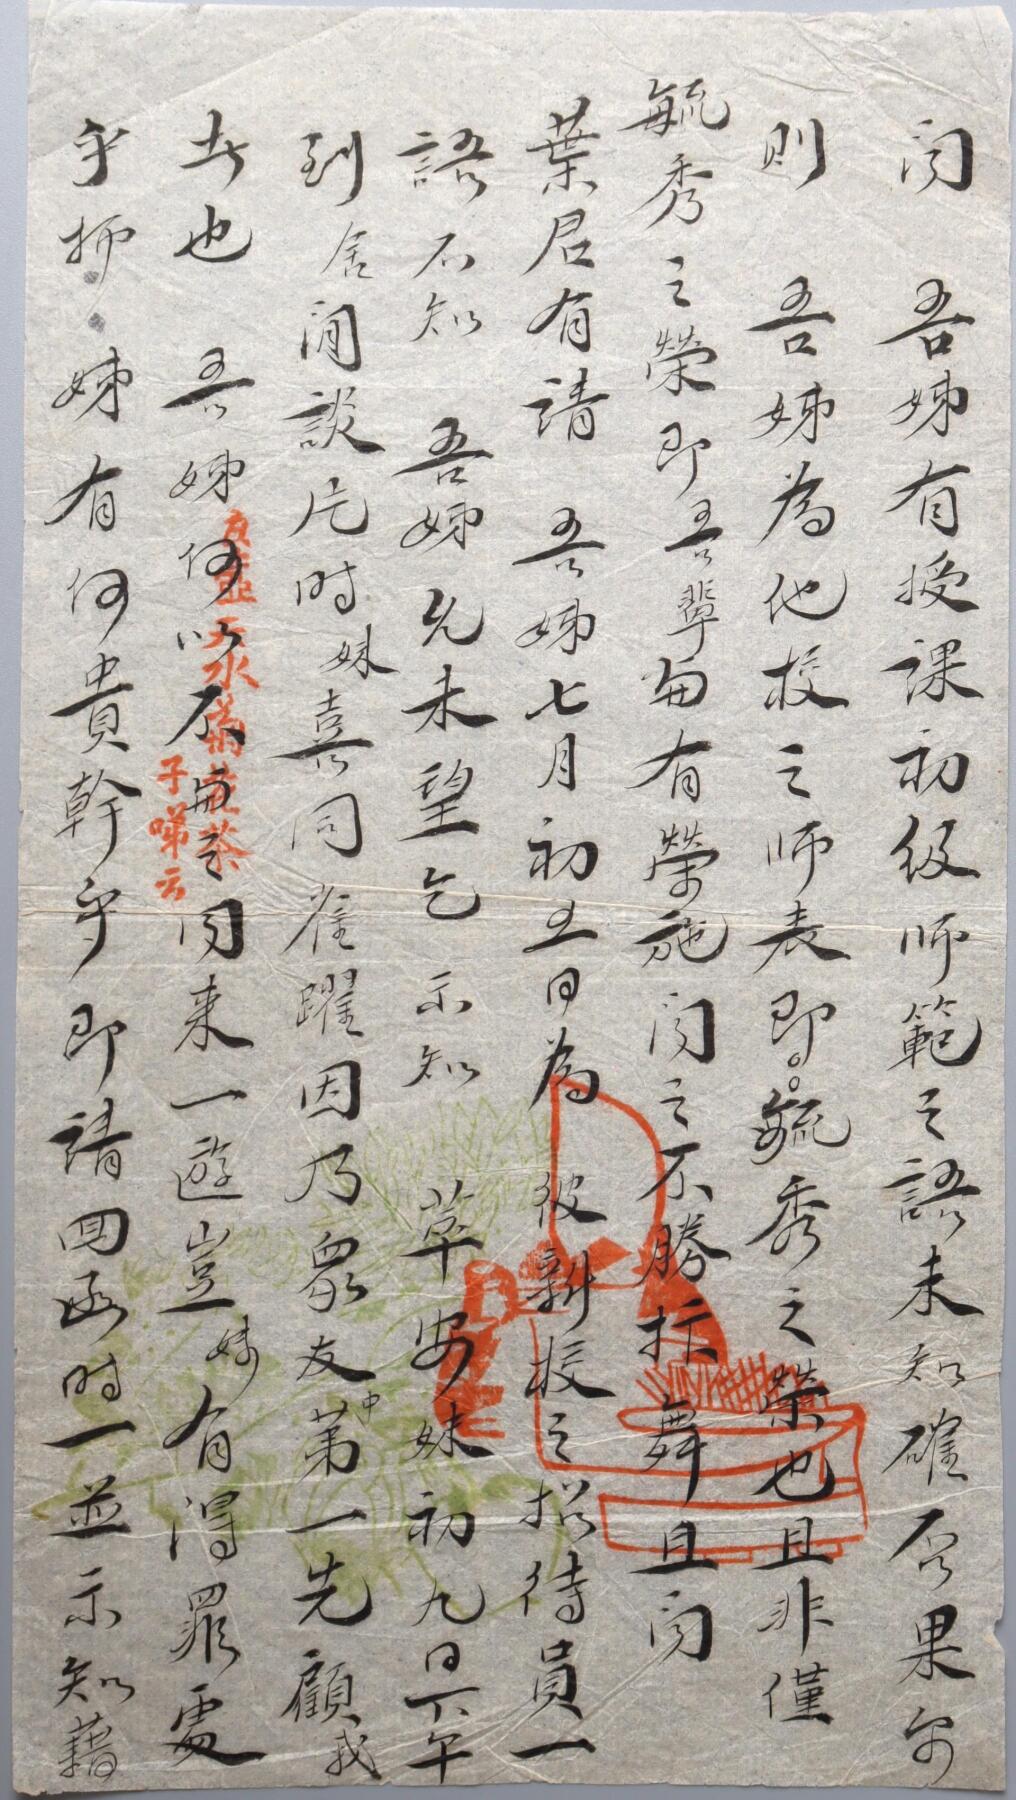 聞　吾姊有授課初級師範之語未知確否果尔
則　吾姊為他校之師表即毓秀之榮也且非僅
毓秀之榮即吾輩勻有榮施聞之不勝抃舞且聞
葉君有請　吾姊七月初五日為　彼新校之招待員一
語不知　吾姊允未望乞　示知　草安妹初九日下午
到舍閒談片時妹喜同雀躍因乃眾友中第一先顧我
者也　吾姊何以不與之同來一遊豈妹有得罪處
乎抑　姊有何貴幹乎即請回函時一並示知藉
天水蒲
子啼云